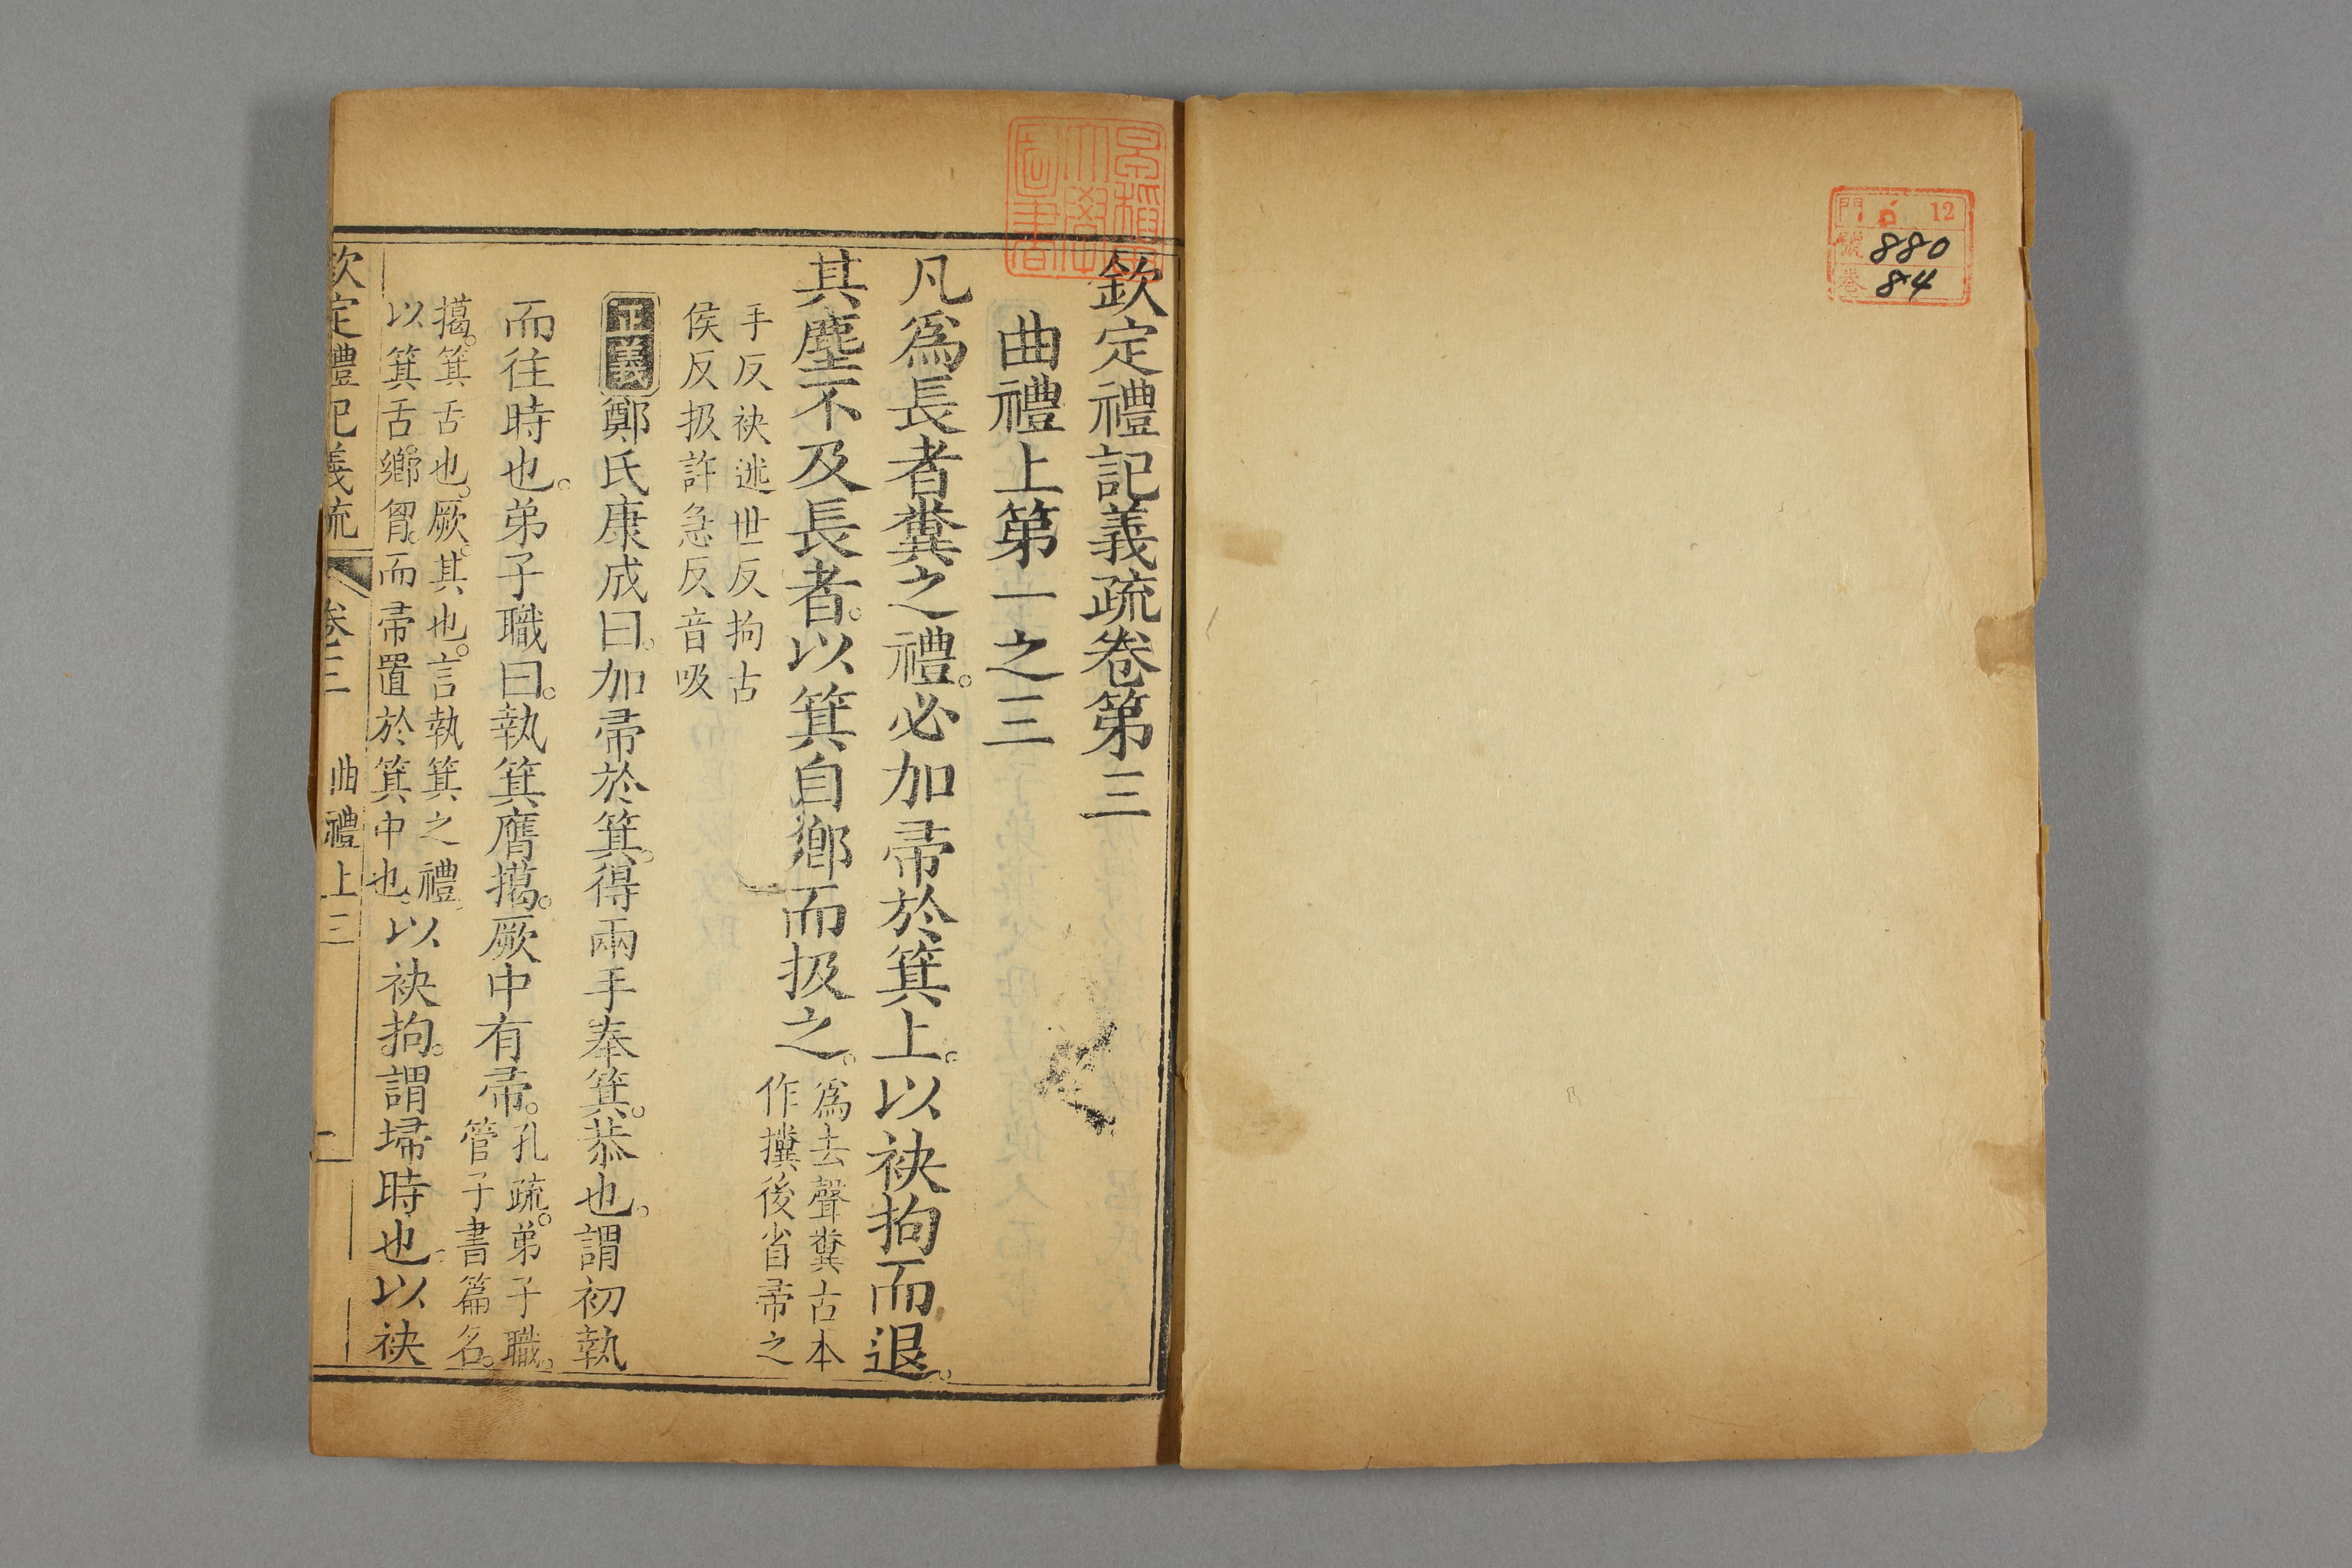 門 ろ 12
號 880
卷 84
早稲田大學圖書
欽定禮記義疏卷第三
曲禮上第一之三
凡爲長者糞之禮。必加帚於箕上。以袂拘而退。
其塵不及長者。以箕自鄉而扱之。爲去聲糞古本
作攩後省帚之
手反袂逑世反拘古
侯反扱許急反音吸
正義鄭氏康成曰。加帚於箕。得兩手奉箕。恭也。謂初執
而往時也。弟子職曰。執箕膺擖。厥中有帚。孔疏。弟子職。
管子書篇名。
擖。箕舌也。厥。其也。言執箕之禮。
以箕舌。鄉胷。而帚置於箕中也。以袂拘。謂埽時也。以袂
欽定禮記義疏 卷三 曲禮上三 一